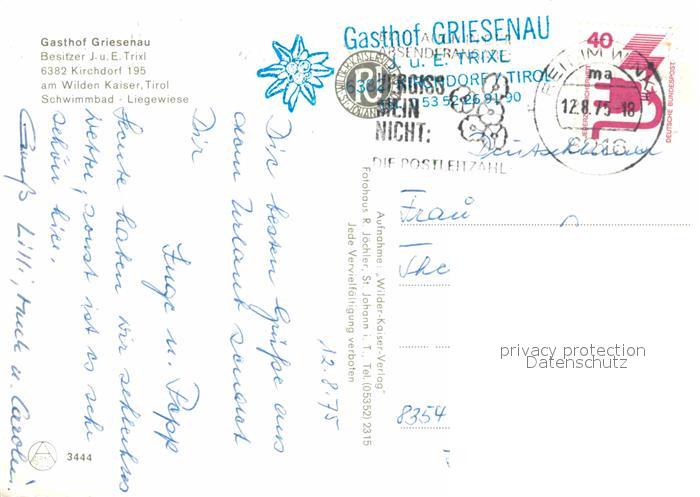 Gasthof Griesenau
Besitzer J. u. E. Trixl
6382 Kirchdorf 195
am Wilden Kaiser, Tirol
Schwimmbad - Liegewiese
Gasthof GRIESENAU
u. E. TRIXL
KIRCHDORF / TIROL
ABSENDERANGABE
VERGISS
MEIN
NICHT:
DIE POSTLEITZAHL
REIT IM WINKL
ma
12.8.75-18
8216
40
DEUTSCHE BUNDESPOST
Deutschland
Die besten Grüße aus
dem Urlaub sendet
Dir
Inge u. Popp
Heute haben wir schlechtes
Wetter, sonst ist es sehr
schön hier.
Gruß Lilli,
12.8.75
Aufnahme: „Wilder-Kaiser-Verlag"
Fotohaus R. Jöchler, St. Johann i. T., Tel. (05352) 2315
Jede Vervielfältigung verboten
Frau
8354
privacy protection
Datenschutz
3444